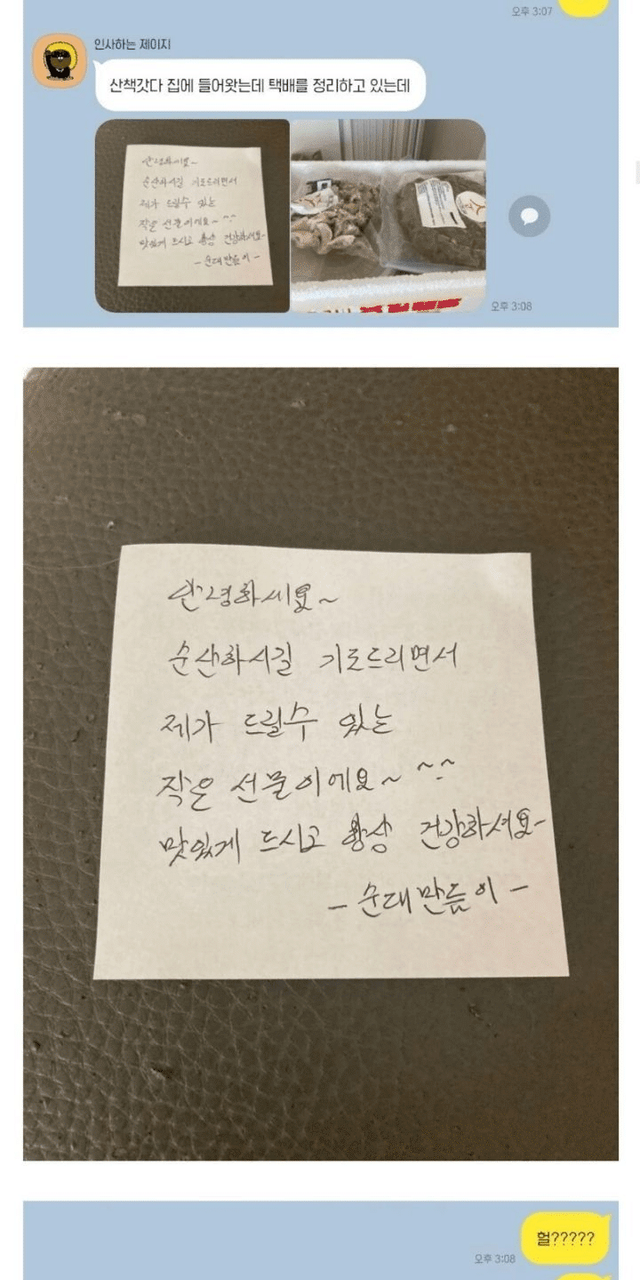 오후 3:07
인사하는 제이지
산책갓다 집에 들어왓는데 택배를 정리하고 있는데
안녕하세요~
순산하시길 기도드리면서
제가 드릴수 있는
작은 선물이에요~ ^^
맛있게 드시고 항상 건강하셔요~
- 순대만듦이 -
오후 3:08
안녕하씨요~
순산하시길 기도드리면서
제가 드릴수 있는
작은 선물이에요~ ^^
맛있게 드시고 항상 건강하셔요~
- 순대만듦이 -
헐?????
오후 3:08